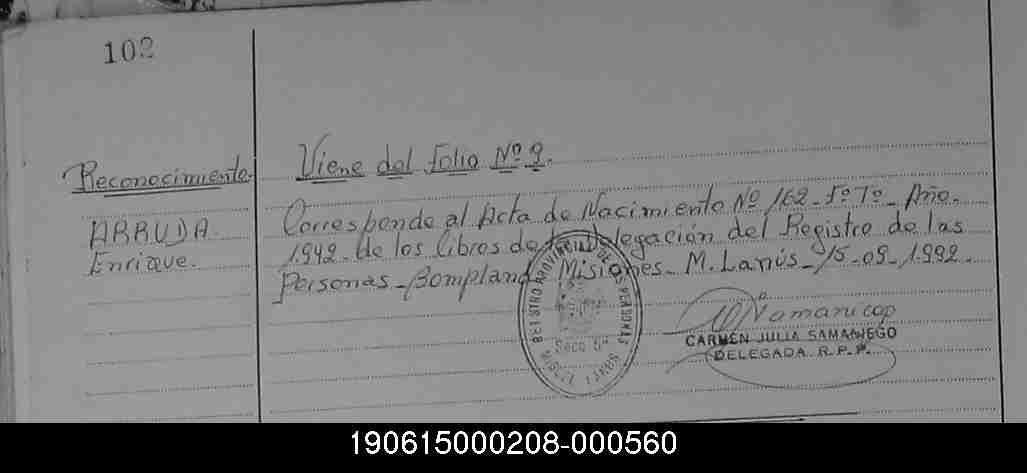 102
Viene del folio Nº 9.
Reconocimiento.
ARRUDA.
Enrique.
Corresponde al Acta de Nacimiento Nº 162 - Iº Tº - Año.
1942 - de los Libros de la Delegación del Registro de las
Personas - Bompland Misiones - M. Lanús - 15 - 09 - 1.992.
REGISTRO PROVINCIAL DE LAS PERSONAS
Secc. 5ª
MIGUEL LANUS
CARMEN JULIA SAMANIEGO
DELEGADA R.P.P.
190615000208-000560